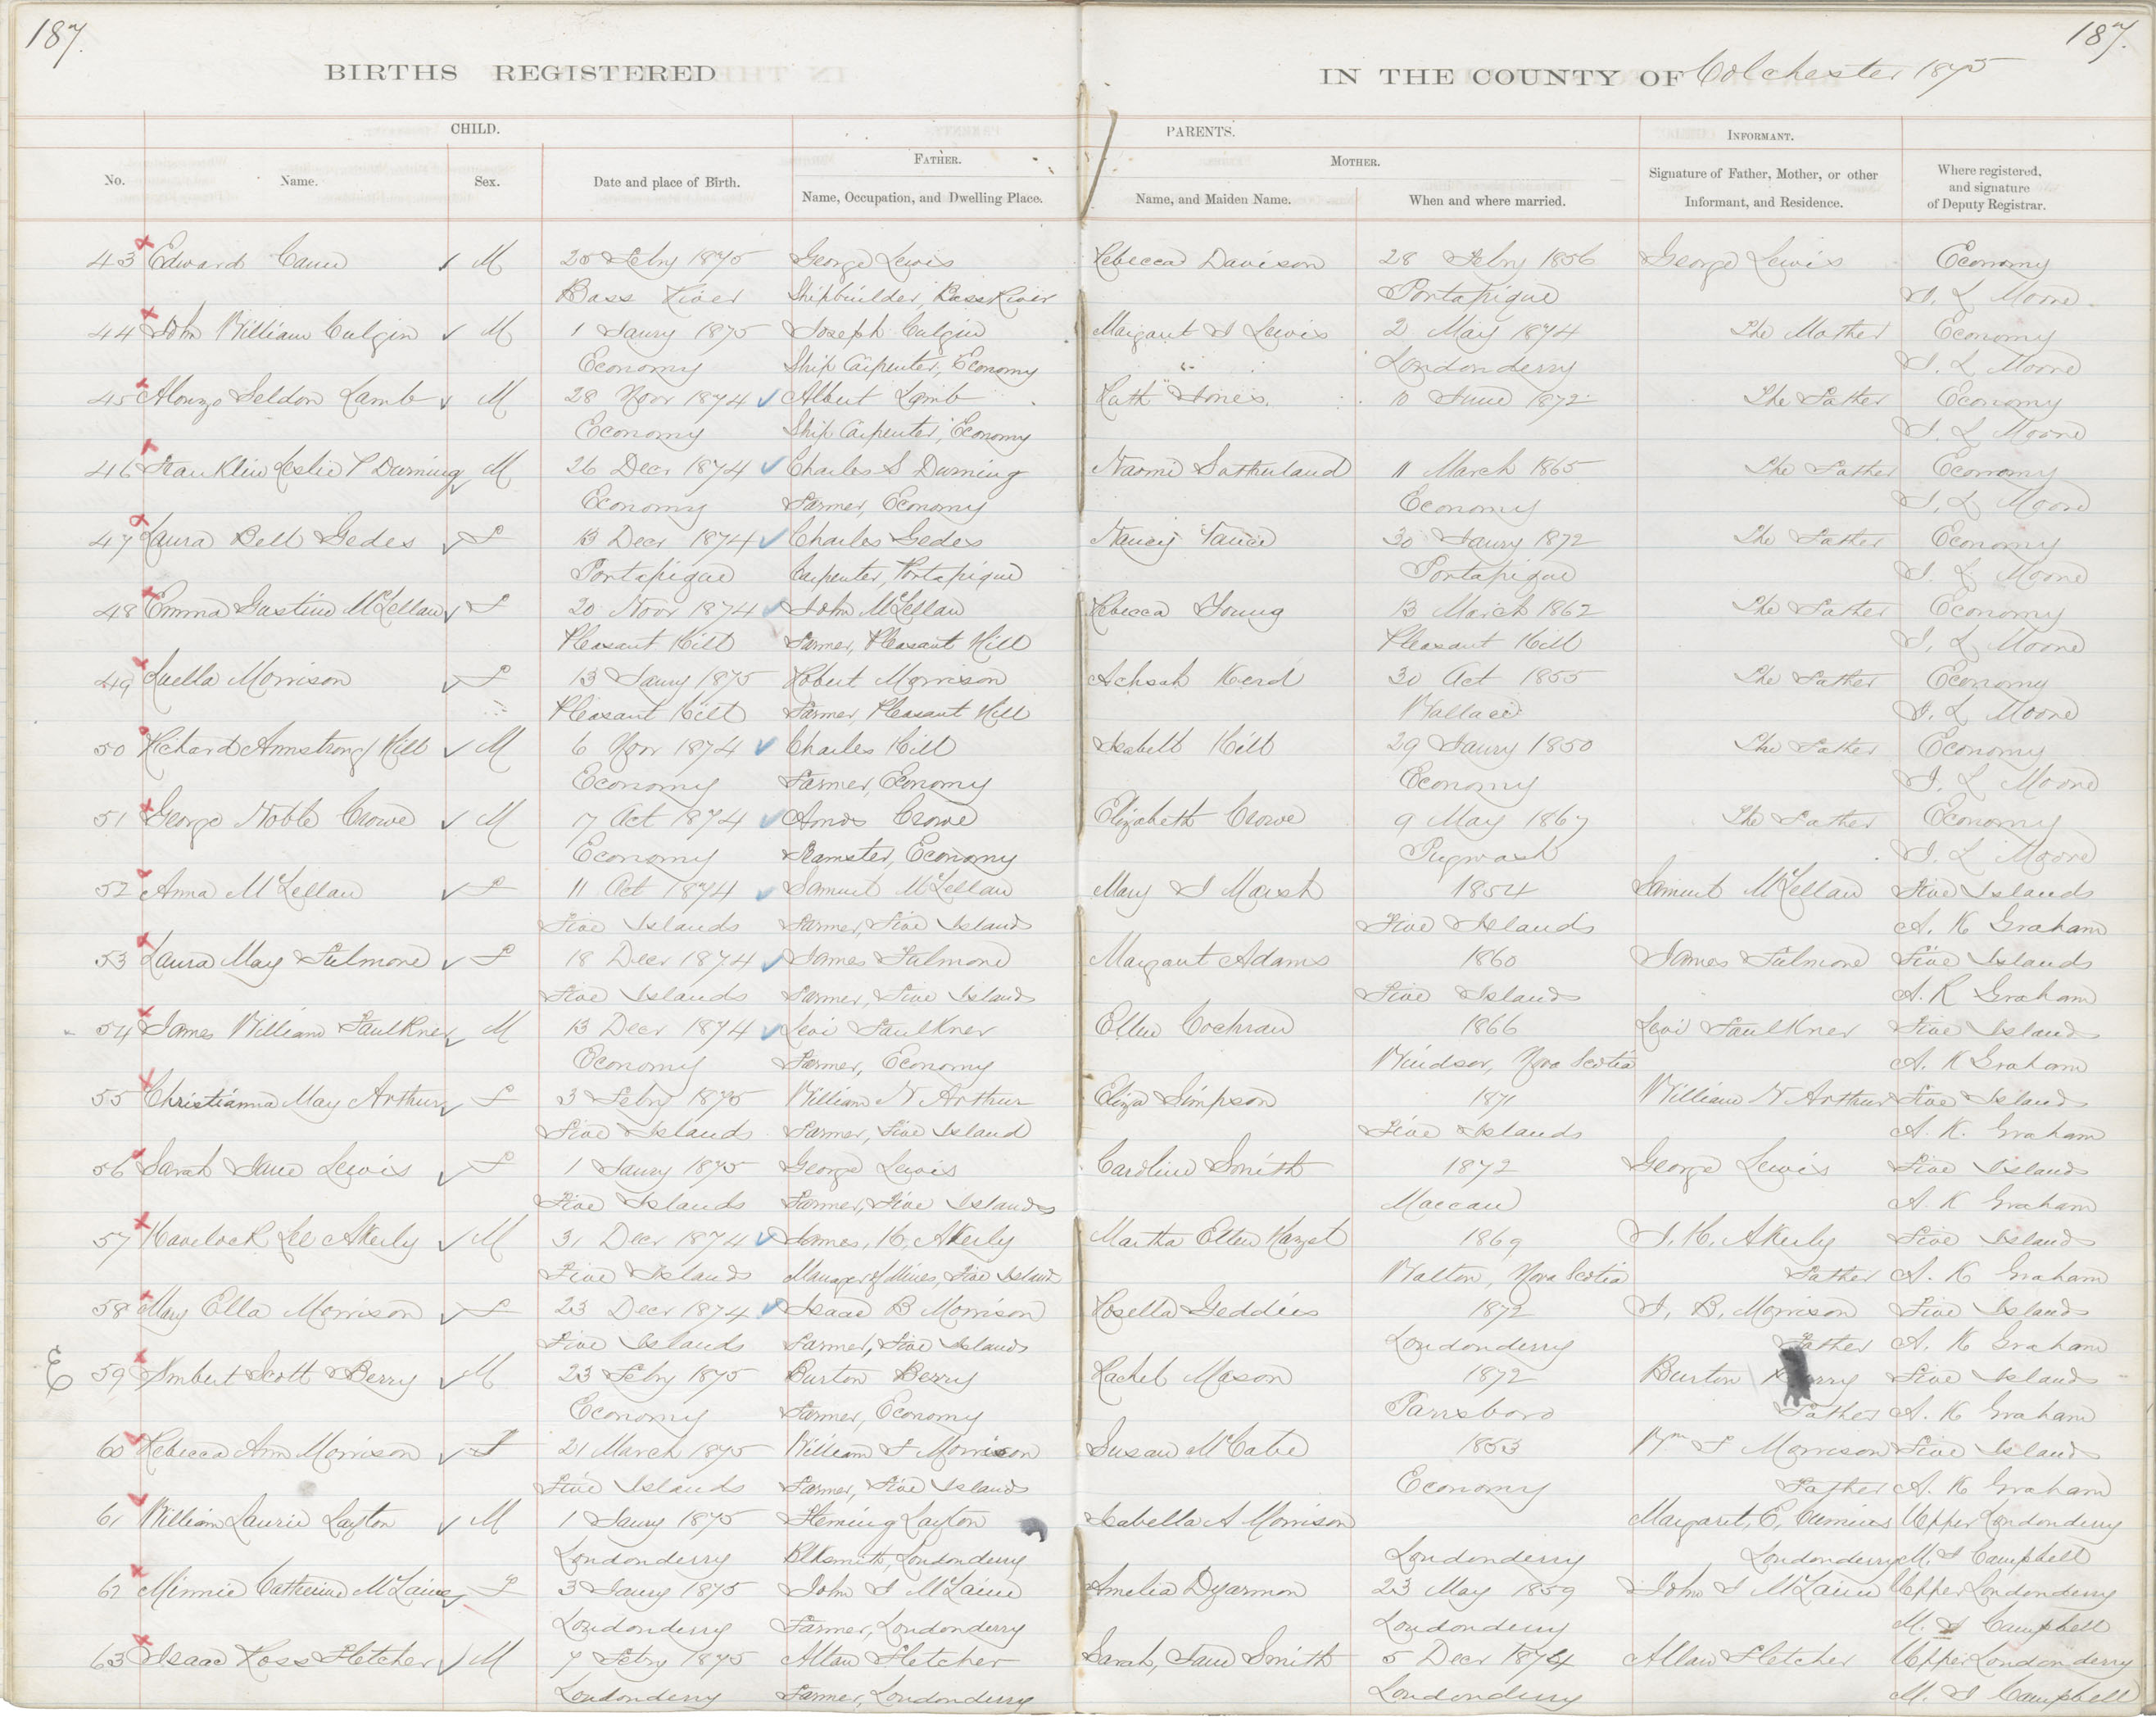 187.
187.
BIRTHS REGISTERED
IN THE COUNTY OF Colchester 1875
CHILD.
PARENTS.
INFORMANT.
FATHER.
MOTHER.
No. Name. Sex. Date and place of Birth. Name, Occupation, and Dwelling Place. Name, and Maiden Name. When and where married. Signature of Father, Mother, or other Informant, and Residence. Where registered, and signature of Deputy Registrar.
43 Edward M 25 Feby 1875 George Lewis Rebecca Davison 28 Feby 1856 George Lewis Economy
Bass River Shipbuilder, Bass River Portapique L Moore
44 John William Culgin M 1 Jany 1875 Joseph Culgin Margaret J Lewis 2 May 1874 The Mother Economy
Economy Ship Carpenter, Economy Londonderry L Moore
45 Alonzo Seldon Lamb M 28 Novr 1874 Albert Lamb 10 June 1872 The Father Economy
Economy Ship Carpenter, Economy L Moore
46 Franklin Leslie P Durning M 26 Decr 1874 Charles S Durning Naomi Sutherland 11 March 1865 The Father Economy
Economy Farmer, Economy Economy L Moore
47 Laura Bell Gedes F 13 Decr 1874 Charles Gedes Nancy 30 Jany 1872 The Father Economy
Portapique Carpenter, Portapique Portapique L Moore
48 Emma McLellan F 20 Novr 1874 John McLellan Rebecca Young 13 March 1862 The Father Economy
Pleasant Hill Farmer, Pleasant Hill Pleasant Hill L Moore
49 Luella Morrison F 13 Jany 1875 Robert Morrison Achsah 30 Oct 1855 The Father Economy
Pleasant Hill Farmer, Pleasant Hill Wallace L Moore
50 Richard Armstrong Hill M 6 Novr 1874 Charles Hill Isabell Hill 29 Jany 1850 The Father Economy
Economy Farmer, Economy Economy L Moore
51 George Noble Crowe M 7 Oct 1874 Amos Crowe Elizabeth Crowe 9 May 1867 The Father Economy
Economy Teamster, Economy Pugwash L Moore
52 Anna McLellan F 11 Oct 1874 Samuel McLellan Mary J Marsh 1854 Samuel McLellan Five Islands
Five Islands Farmer, Five Islands Five Islands A. K Graham
53 Laura May Fulmore F 18 Decr 1874 James Fulmore Margaret Adams 1860 James Fulmore Five Islands
Five Islands Farmer, Five Islands Five Islands A. K Graham
54 James William Faulkner M 13 Decr 1874 Levi Faulkner Ellen Cochran 1866 Levi Faulkner Five Islands
Economy Farmer, Economy Windsor, Nova Scotia A. K Graham
55 Christianna May Arthur F 3 Feby 1875 William N Arthur Eliza Simpson 1871 William N Arthur Five Islands
Five Islands Farmer, Five Island Five Islands A. K. Graham
56 Sarah Jane Lewis F 1 Jany 1875 George Lewis Caroline Smith 1872 George Lewis Five Islands
Five Islands Farmer, Five Islands Maccan A. K Graham
57 Havelock Lee Akerly M 31 Decr 1874 James, H. Akerly Martha Ellen 1869 J. H. Akerly Five Islands
Five Islands Manager of Mines, Five Islands Walton, Nova Scotia Father A. K Graham
58 Mary Ella Morrison F 23 Decr 1874 Isaac B Morrison Rosella Geddies 1872 I. B. Morrison Five Islands
Five Islands Farmer, Five Islands Londonderry Father A. K Graham
E 59 Scott Berry M 23 Feby 1875 Burton Berry Rachel Mason 1872 Burton Berry Five Islands
Economy Farmer, Economy Parrsboro Father A. K Graham
60 Rebecca Ann Morrison F 21 March 1875 William F Morrison Susan McCabe 1853 Wm F Morrison Five Islands
Five Islands Farmer, Five Islands Economy Father A. K Graham
61 William Laurie Layton M 1 Jany 1875 Fleming Layton Isabella A Morrison Margaret, E, Upper Londonderry
Londonderry Blksmith, Londonderry Londonderry Londonderry M. J Campbell
62 Minnie Catherine McLaine F 3 Jany 1875 John J McLaine Amelia Dyarmon 23 May 1859 John J McLaine Upper Londonderry
Londonderry Farmer, Londonderry Londonderry M. J Campbell
63 Isaac Ross Fletcher M 7 Feby 1875 Allan Fletcher Sarah, Jane Smith 5 Decr 1874 Allan Fletcher Upper Londonderry
Londonderry Farmer, Londonderry Londonderry M. J Campbell